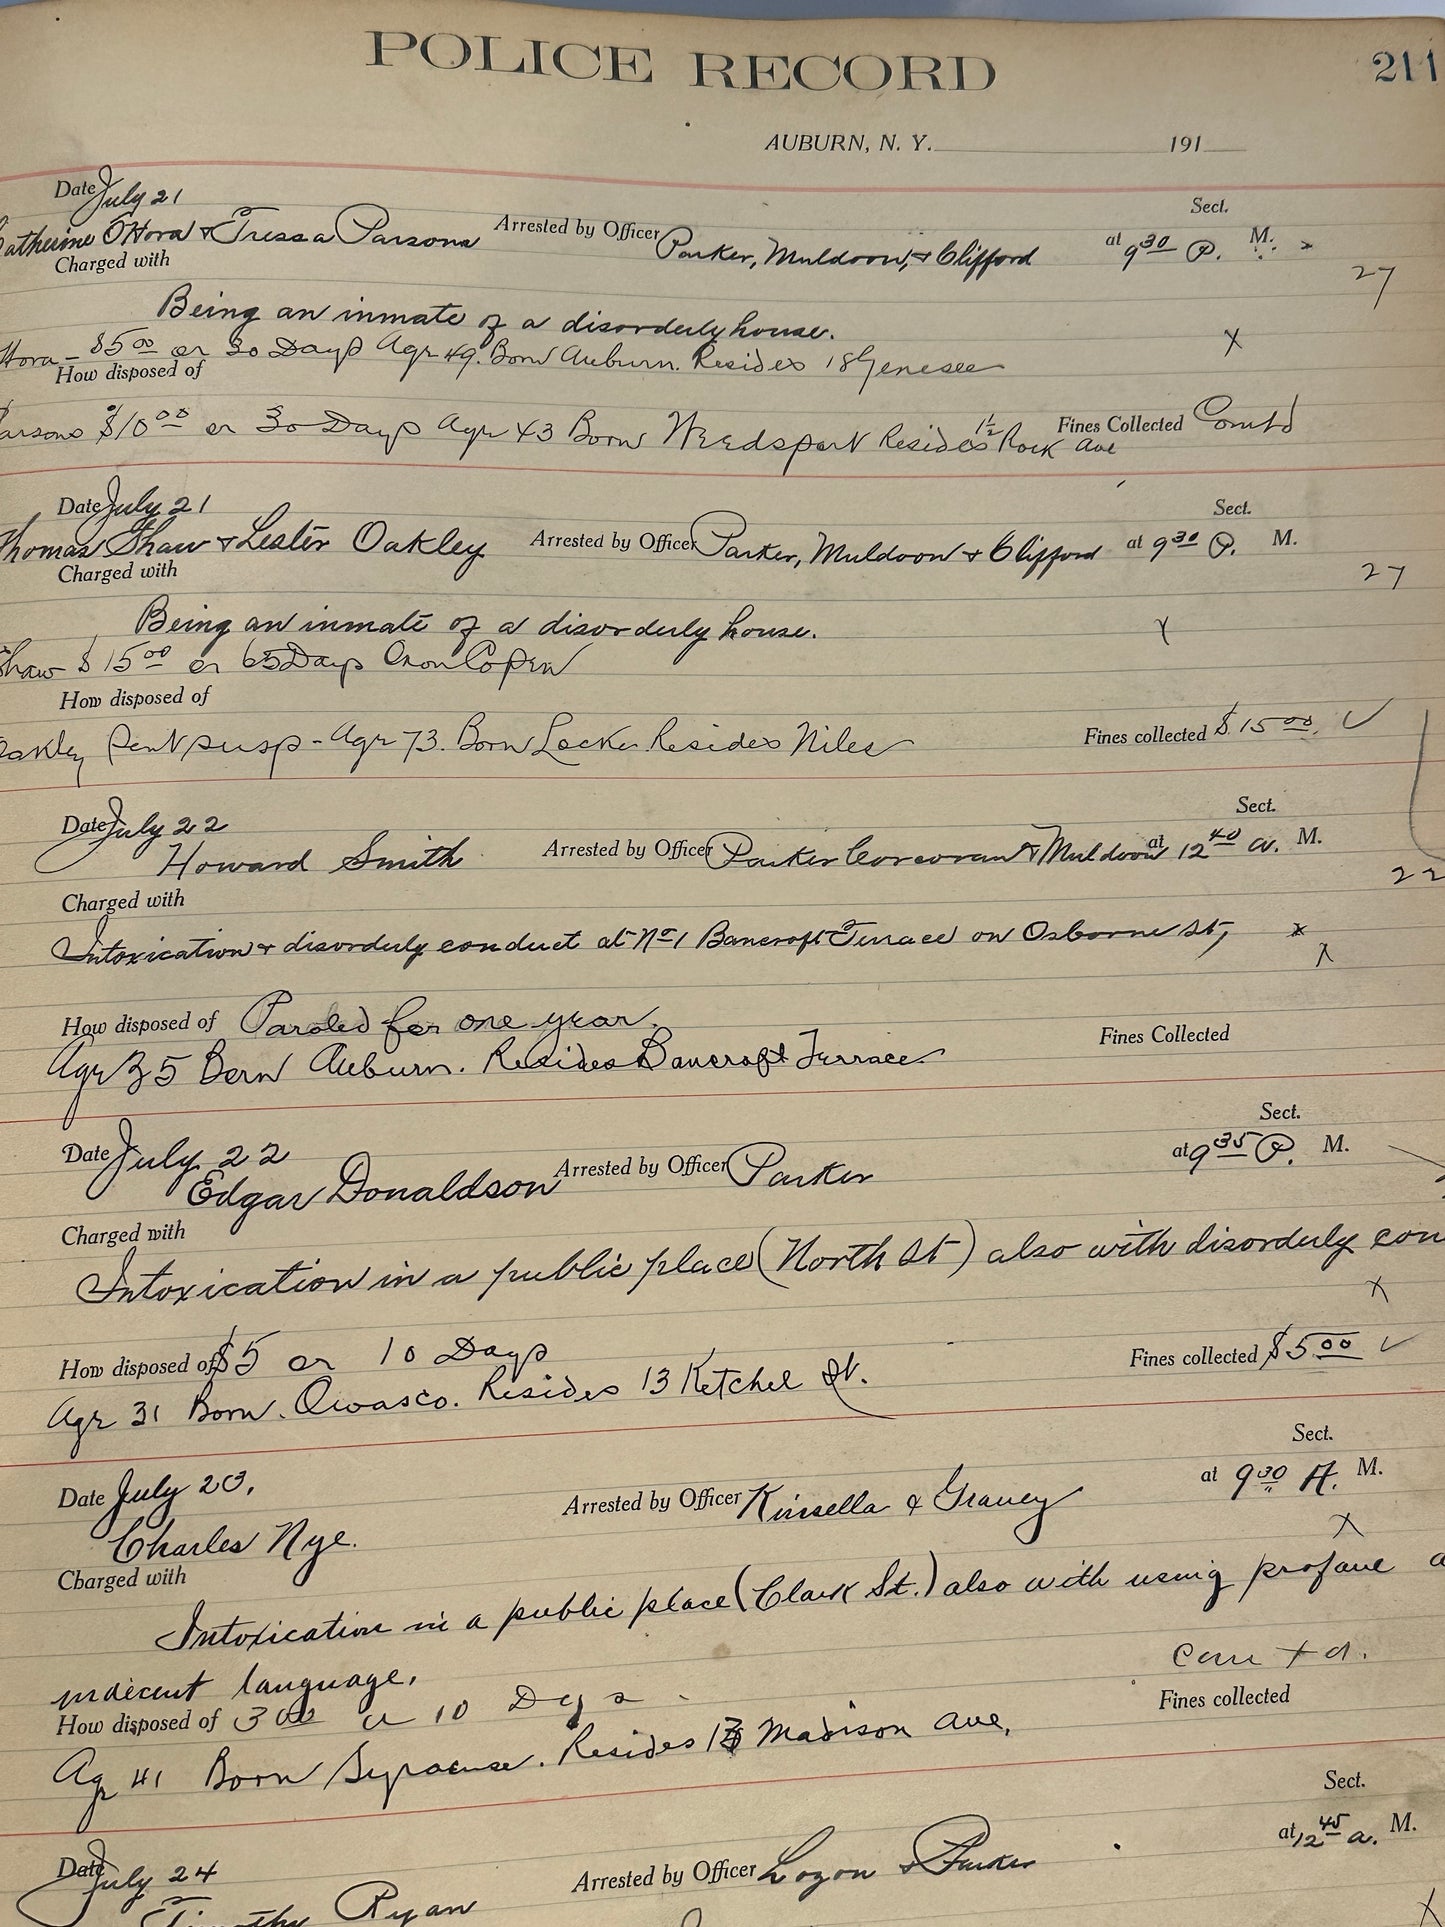 POLICE RECORD
211
AUBURN, N. Y. 191
Date July 21
Sect.
Catherine O'Hora & Tressa Parsons Arrested by Officer Parker, Muldoon, & Clifford at 9 30 P. M.
Charged with
27
Being an inmate of a disorderly house. x
Hora - $5 00 or 30 Days Age 49. Born Auburn. Resides 18 Genesee
How disposed of
Parsons $10 00 or 30 Days Age 43 Born Weedsport Resides 1/2 Rock Ave Fines Collected Comtd
Date July 21
Sect.
Thomas Shaw & Lester Oakley Arrested by Officer Parker, Muldoon & Clifford at 9 30 P. M.
Charged with
27
Being an inmate of a disorderly house. x
Shaw $15 00 or 65 Days
How disposed of
Oakley Sent susp - Age 73. Born Locke. Resides Niles Fines collected $15 00.
Date July 22
Sect.
Howard Smith Arrested by Officer Parker Corcoran & Muldoon at 12 40 a. M.
Charged with
22
Intoxication & disorderly conduct at No 1 Bancroft Terrace on Osborne St, x
x
How disposed of Paroled for one year.
Age 35 Born Auburn. Resides Bancroft Terrace Fines Collected
Date July 22
Sect.
Edgar Donaldson Arrested by Officer Parker at 9 35 P. M.
Charged with
Intoxication in a public place (North St) also with disorderly con
x
How disposed of $5 or 10 Days Fines collected $5 00
Age 31 Born. Owasco. Resides 13 Ketchel St.
Date July 23,
Sect.
Charles Nye. Arrested by Officer Kinsella & Graney at 9 30 A. M.
Charged with
x
Intoxication in a public place (Clark St.) also with using profane a
indecent language.
How disposed of 3 00 or 10 Dys Fines collected
Age 41 Born Syracuse. Resides Madison Ave.
Date July 24
Sect.
Timothy Ryan Arrested by Officer Logon & Parker at 12 45 a. M.
x